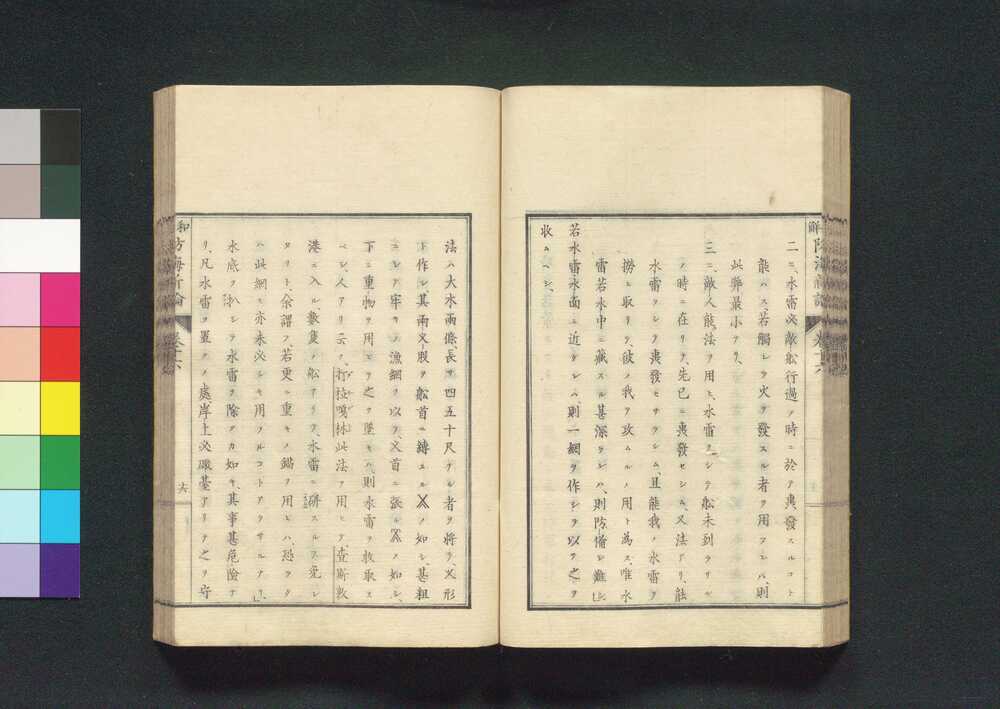 二ニ、水雷必敵船行過ノ時ニ於テ轟發スルコト
能ハス、若觸レテ火ヲ發スル者ヲ用フレハ、則
此弊最小ナリ、
三ニ、敵人能法ヲ用ヒ、水雷ヲシテ船未到ラサル
ノ時ニ在リテ、先已ニ轟發セシム、又法アリ、能
水雷ヲシテ轟發セサラシム、且能我ノ水雷ヲ
撈ヒ取リテ、彼ノ我ヲ攻ムルノ用ト為ス、唯水
雷若水中ニ藏スル甚深ケレハ、則防備シ難シ、
若水雷水面ニ近ケレハ、則一網ヲ作シテ以テ之ヲ
收ムヘシ、
法ハ大木兩條、長サ四五十尺ナル者ヲ將テ、乂形
ト作シ、其兩叉股ヲ船首ニ縛スル乂ノ如シ、甚粗
ニシテ牢キノ漁網ヲ以テ、叉首ニ張ル ノ如シ、
下ニ重物ヲ用ヒテ之ヲ墜セハ、則水雷ヲ救取ス
ベシ、人アリ云フ、打拉嘎林此法ヲ用ヒテ、查斯敦
港ニ入ル數隻ノ船アリテ、水雷ニ礙スルヲ免レ
タリト、余謂フ、若更ニ重キノ錨ヲ用ヒハ、恐ラク
ハ此網モ亦未必シモ用フルコトアラサルナリ、
水底ヲ扒シテ水雷ヲ除クカ如キ、其事甚危險ナ
リ、凡水雷ヲ置クノ處、岸上必礮臺アリテ之ヲ守
六